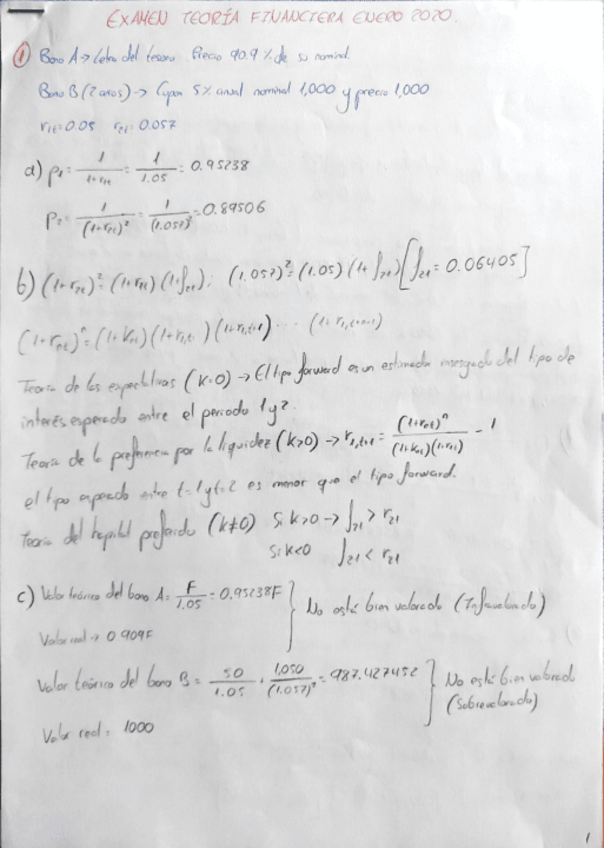 EXAMEN TEORÍA FINANCIERA ENERO 2020.
① Bono A → Letra del tesoro. Precio 90.9 % de su nominal.
Bono B (2 años) → Cupon 5% anual nominal 1,000 y precio 1,000
r1t = 0.05 r2t = 0.057
a) p1 = 1/(1+r1t) = 1/1.05 = 0.95238
P2 = 1/(1+r2t)² = 1/(1.057)² = 0.89506
b) (1+r2t)² = (1+r1t)(1+f21); (1.057)² = (1.05)(1+f21) [f21 = 0.06405]
(1+rnt)^n = (1+knt)(1+r1,t)(1+r1,t+1) ... (1+r1,t+n-1)
Teoria de las expectativas (k=0) → El tipo forward es un estimador insesgado del tipo de
interés esperado entre el periodo 1 y 2.
Teoría de la preferencia por la liquidez (k>0) → r1,t+1 = (1+rnt)^n/((1+knt)(1+r1t)) - 1
el tipo esperado entre t=1 y t=2 es menor que el tipo forward.
Teoria del hapital preferido (k≠0) Si k>0 → f21 > r21
Si k<0 f21 < r21
c) Valor teórico del bono A = F/1.05 = 0.95238F
No está bien valorado (Infravalorado)
Valor real → 0.909F
Valor teórico del bono B = 50/1.05 + 1,050/(1.057)² = 987.427452
No está bien valorado
(Sobrevalorado)
Valor real = 1000
1